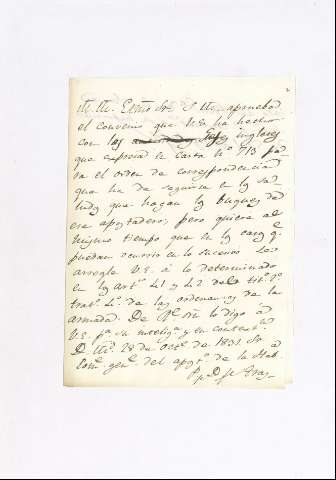 el convenio que V.E. ha hecho
con los ingleses
que expresa la carta nº 713 pa-
ra el orden de correspondencia
que ha de seguirse en los sa-
ludos que hagan los buques de
ese apostadero; pero quiere al
mismo tiempo que en los casos q.e
puedan ocurrir en lo sucesivo se
arregle V.E. á lo determinado
en los artos 41 y 42 del titº
tratº de las ordenanzas de la
armada. De Rl orn lo digo á
V.E. pa su intelig.a y en contestn
28 de Octe de 1831. Sor
Come genl del apostº de la Hab.